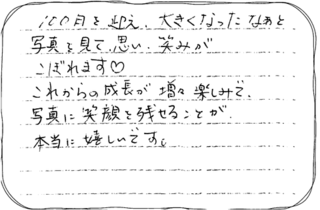 100日を迎え、大きくなったなぁと
写真を見て、思い、笑みが
こぼれます♡
これからの成長が増々楽しみで、
写真に笑顔を残せることが、
本当に嬉しいです。